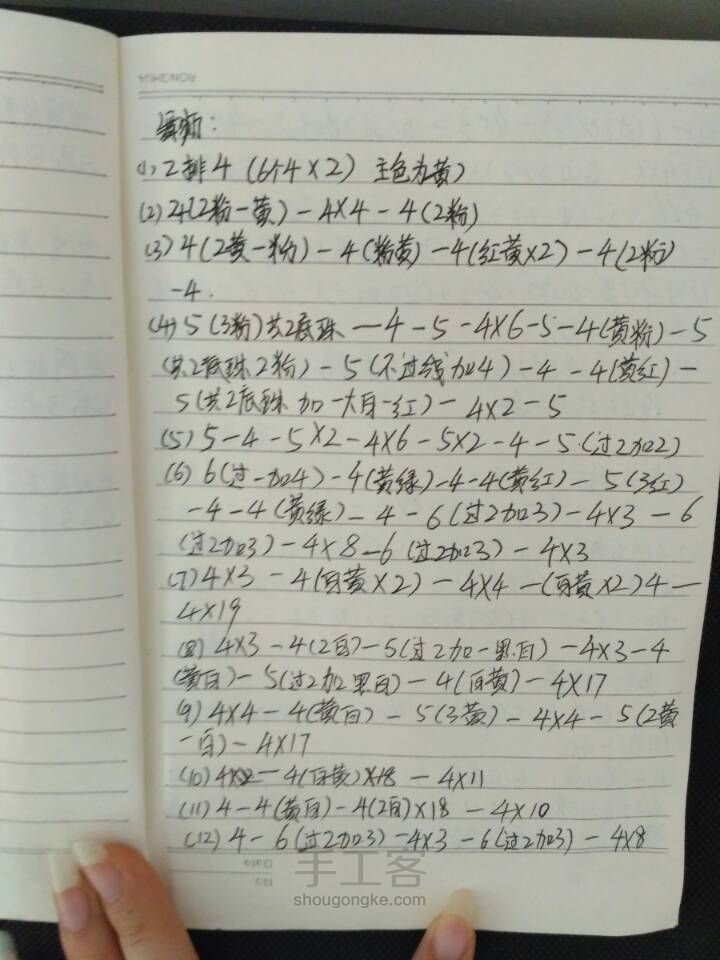 RONGHUA
(1) 2排4 (6个4×2) 主色为黄
(2) 4(2粉一黄)-4×4-4(2粉)
(3) 4(2黄一粉)-4(粉黄)-4(红黄×2)-4(2粉)
-4.
(4) 5(3粉)共2底珠-4-5-4×6-5-4(黄粉)-5
(共2底珠2粉)-5(不过线加4)-4-4(黄红)-
5(共2底珠加一大白一红)-4×2-5
(5) 5-4-5×2-4×6-5×2-4-5(过2加2)
(6) 6(过一加4)-4(黄绿)-4-4(黄红)-5(3红)
-4-4(黄绿)-4-6(过2加3)-4×3-6
(过2加3)-4×8-6(过2加3)-4×3
(7) 4×3-4(白黄×2)-4×4-(白黄×2)4-
4×19
(8) 4×3-4(2白)-5(过2加一黑白)-4×3-4
(黄白)-5(过2加2黑白)-4(白黄)-4×17
(9) 4×4-4(黄白)-5(3黄)-4×4-5(2黄
一白)-4×17
(10) 4×2-4(白黄)×18-4×11
(11) 4-4(黄白)-4(2白)×18-4×10
(12) 4-6(过2加3)-4×3-6(过2加3)-4×8
Date
No.
手工客
shougongke.com